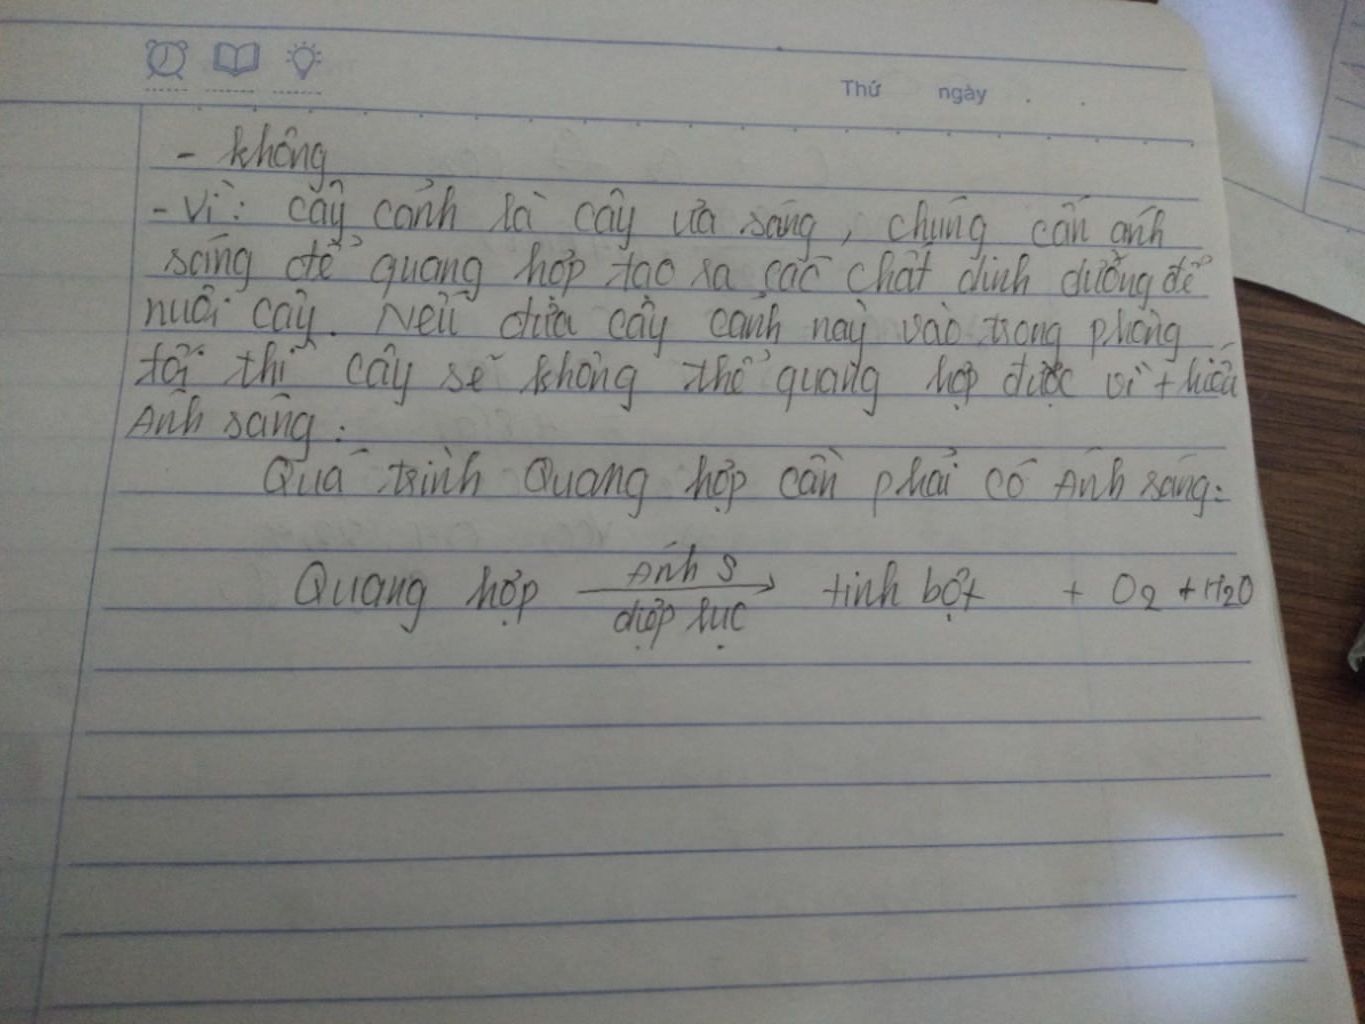 Thứ ngày
- không
- Vì: cây cảnh là cây ưa sáng, chúng cần ánh
sáng để quang hợp tạo ra các chất dinh dưỡng để
nuôi cây. Nếu đưa cây cảnh này vào trong phòng
tối thì cây sẽ không thể quang hợp được vì thiếu
Ánh sáng:
Quá trình Quang hợp cần phải có Ánh sáng:
Quang hợp Ánh S tinh bột + O2 + H2O
diệp lục